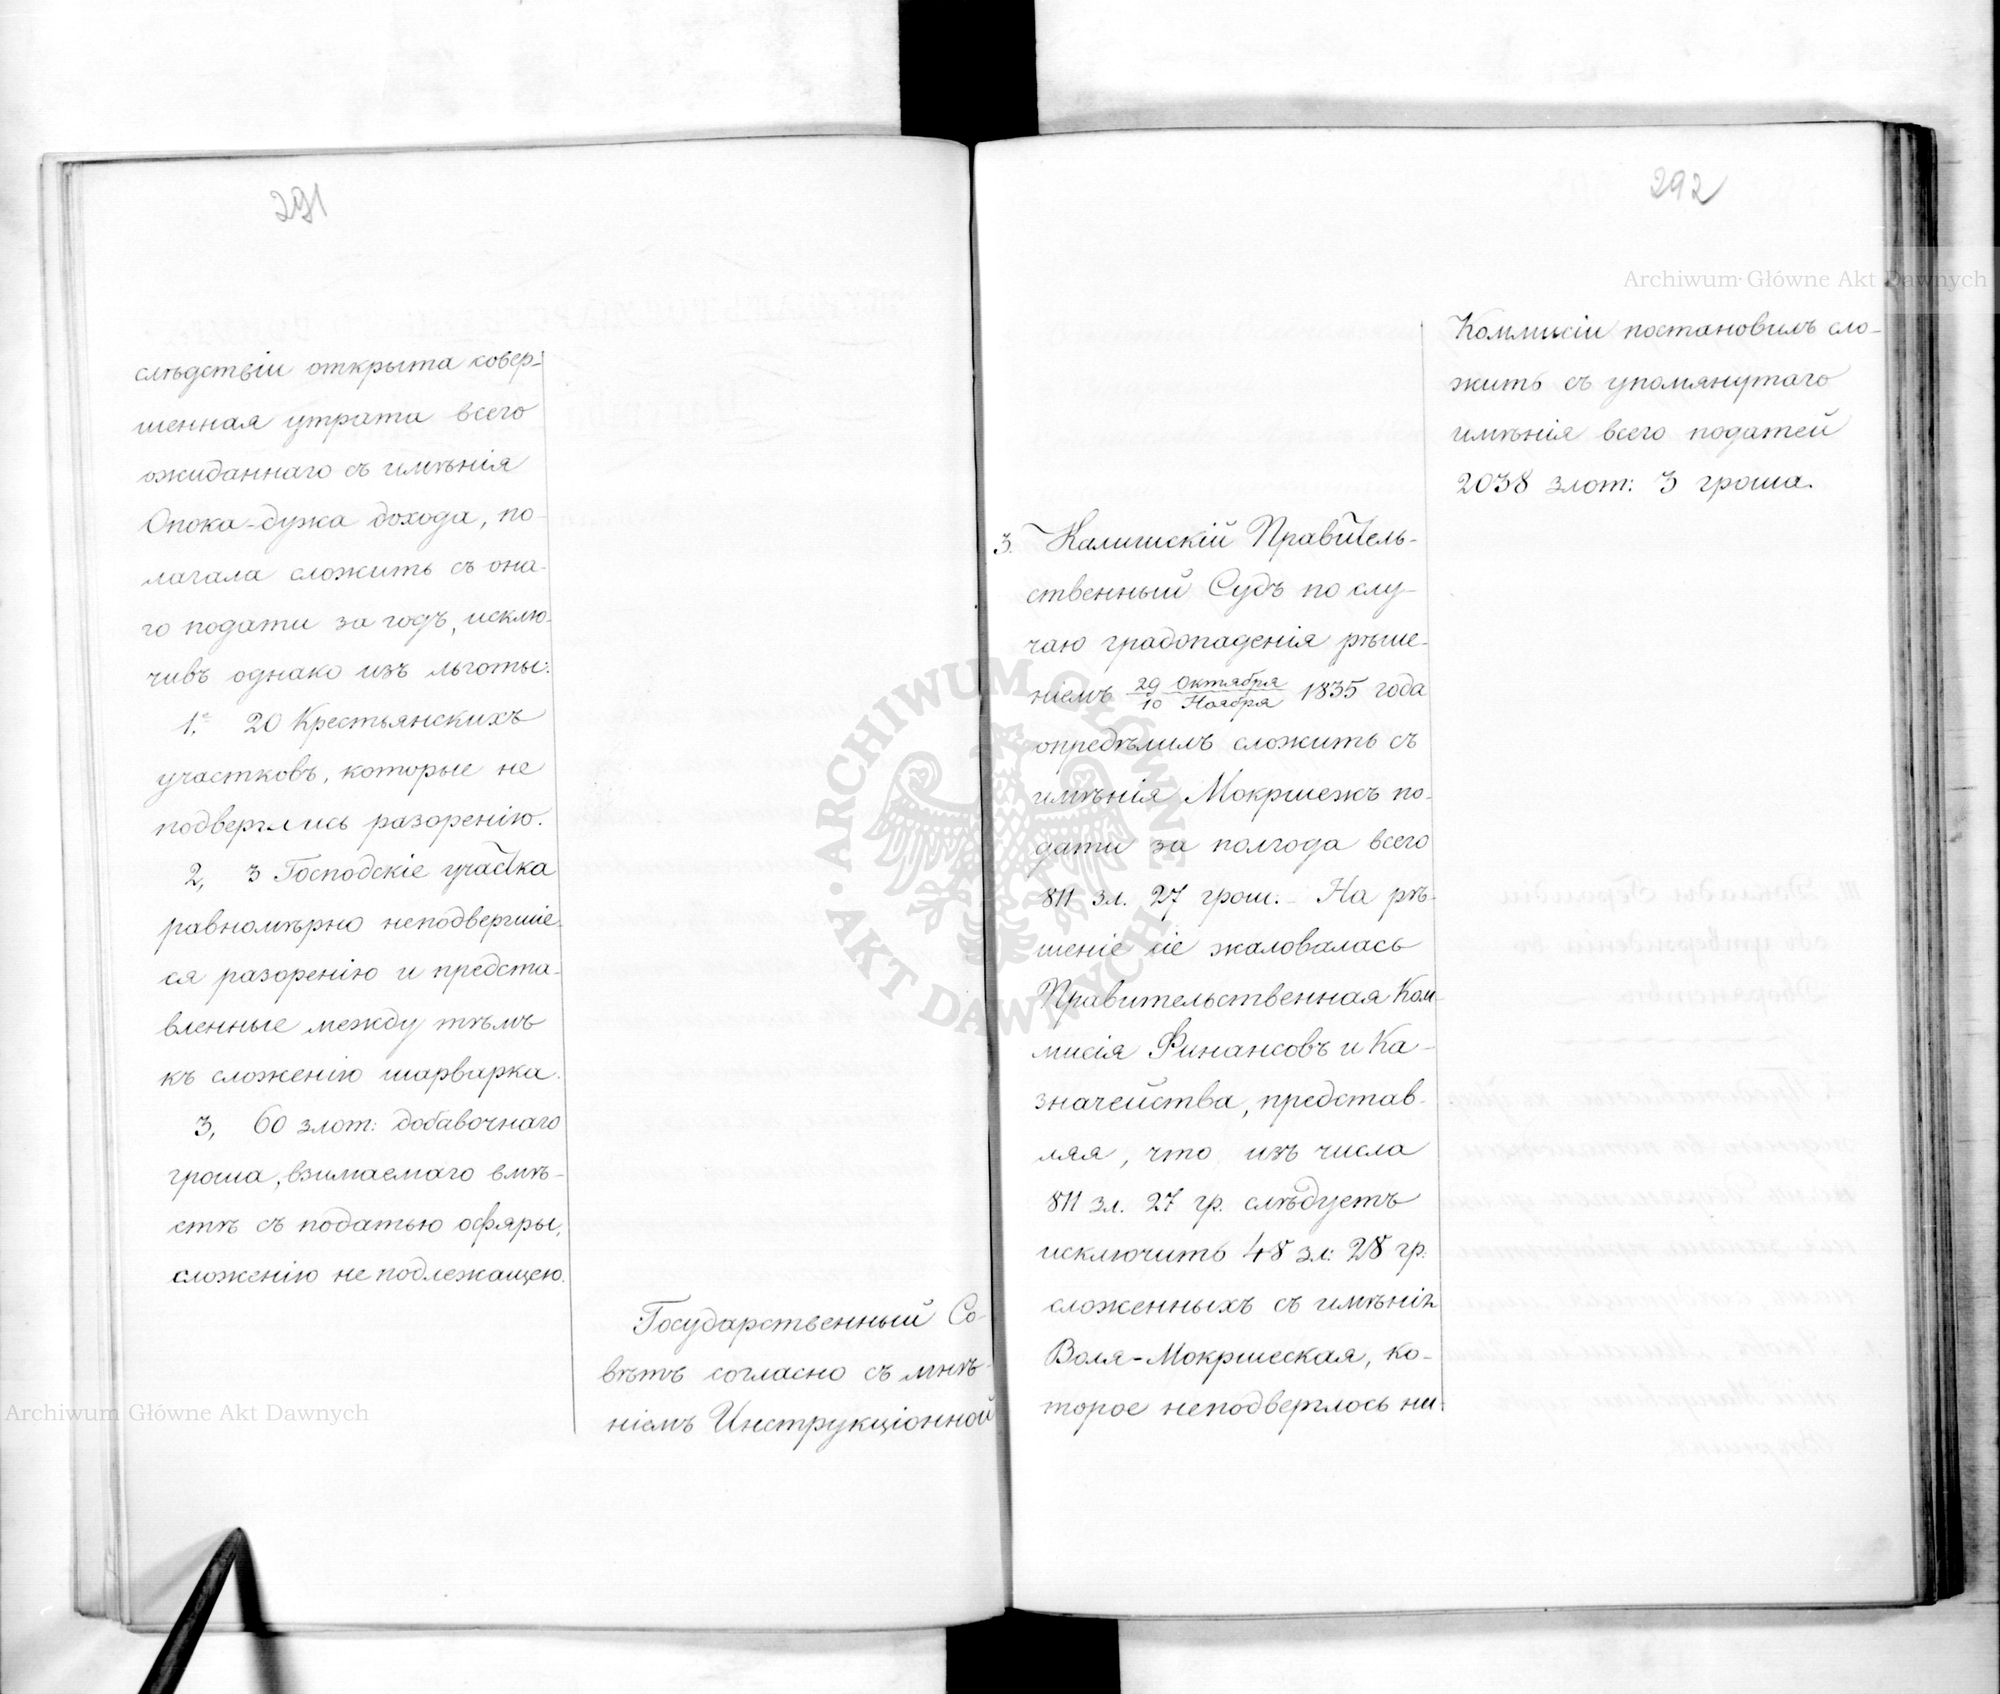 291
слѣдствіи открыта совер-
шенная утрата всего
ожиданнаго съ имѣнія
Опока-дужа дохода, по-
лагала сложить съ она-
го подати за годъ, исклю-
чивъ однако изъ льготы:
1. 20 Крестьянскихъ
участковъ, которые не
подверглись разоренію.
2, 3 Господскіе участка
равномѣрно неподвергшіе-
ся разоренію и предста-
вленные между тѣмъ
къ сложенію шарварка.
3, 60 злот: добавочнаго
гроша, взимаемаго вмѣ-
стѣ съ податью офяры,
сложенію не подлежащею.
Государственный Со-
вѣтъ согласно съ мнѣ-
ніемъ Инструкціонной
292
Коммисіи постановилъ сло-
жить съ упомянутаго
имѣнія всего податей
2038 злот: 3 гроша.
3. Калишскій Правитель-
ственный Судъ по слу-
чаю градопаденія рѣше-
ніемъ 29 Октября / 10 Ноября 1835 года
опредѣлилъ сложить съ
имѣнія Мокршежъ по-
дати за полгода всего
811 зл. 27 грош: - На рѣ-
шеніе сіе жаловалась
Правительственная Ком-
мисія Финансовъ и Ка-
значейства, представ-
ляя, что изъ числа
811 зл. 27 гр. слѣдуетъ
исключить 48 зл: 28 гр.
сложенныхъ съ имѣнія
Воля-Мокршеская, ко-
торое неподверглось ни-
Archiwum Główne Akt Dawnych
Archiwum Główne Akt Dawnych
ARCHIWUM GŁÓWNE AKT DAWNYCH